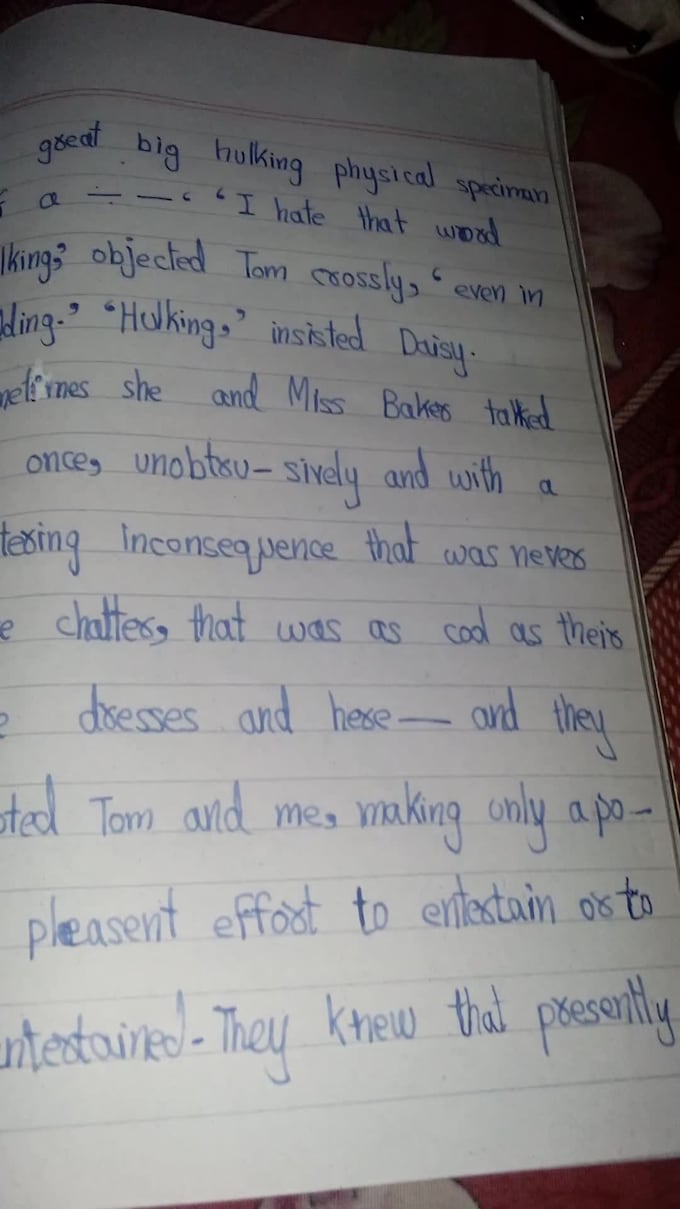 great big hulking physical speciman
a ÷ — ‘ “I hate that word
lking,’ objected Tom crossly, ‘even in
dding.’ “Hulking,’ insisted Daisy.
metimes she and Miss Baker talked
once, unobtru- sively and with a
tering inconsequence that was never
e chatter, that was as cool as their
e dresses and here — and they
pted Tom and me, making only a po-
pleasent effort to entertain or to
ntertained. They knew that presently